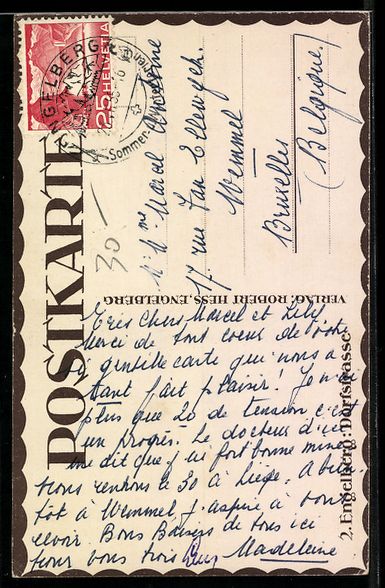 POSTKARTE
ENGELBERG
HELVETIA
25
Sommer-
30-
Mr & Mme Marcel
17 rue Van Ellengen
Wemmel
Bruxelles
(Belgique)
VERLAG: ROBERT HESS, ENGELBERG
2. Engelberg: Dorfstrasse
Très Chers Marcel et Lily
Merci de tout coeur de votre
si gentille carte qui nous a
tant fait plaisir! Je n'ai
plus que 20 de tension c'est
un progrès. Le docteur d'ici
me dit que j'ai fort bonne mine
Nous rentrons le 30 à Liège. A bien-
tôt à Wemmel, j'aspire à vous
revoir Bons Baisers de tous ici
pour vous trois Madeleine